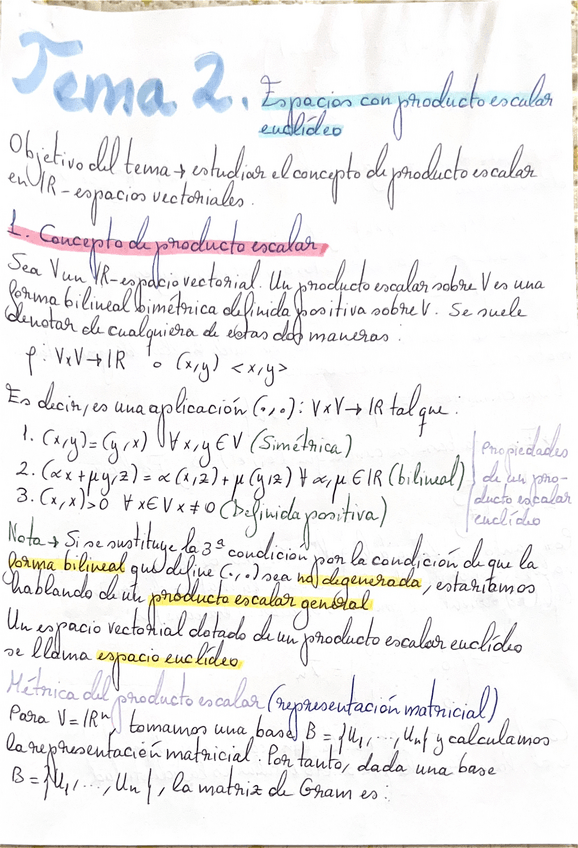 Tema 2. Espacios con producto escalar
euclídeo
Objetivo del tema → estudiar el concepto de producto escalar
en IR-espacios vectoriales.
1. Concepto de producto escalar
Sea V un IR-espacio vectorial. Un producto escalar sobre V es una
forma bilineal simétrica definida positiva sobre V. Se suele
denotar de cualquiera de estas dos maneras:
f: VxV→IR o (x,y) <x,y>
Es decir, es una aplicación (·,·): VxV→IR tal que:
1. (x,y)=(y,x) ∀x,y∈V (Simétrica)
2. (αx+μy,z)=α(x,z)+μ(y,z) ∀α,μ∈IR (bilineal)
3. (x,x)>0 ∀x∈V x≠0 (Definida positiva)
Propiedades
de un pro-
ducto escalar
euclídeo
Nota → Si se sustituye la 3ª condición por la condición de que la
forma bilineal que define (·,·) sea no degenerada, estaríamos
hablando de un producto escalar general
Un espacio vectorial dotado de un producto escalar euclídeo
se llama espacio euclídeo
Métrica del producto escalar (representación matricial)
Para V=IRⁿ, tomamos una base B={u₁,...,uₙ} y calculamos
la representación matricial. Por tanto, dada una base
B={u₁,...,uₙ}, la matriz de Gram es: